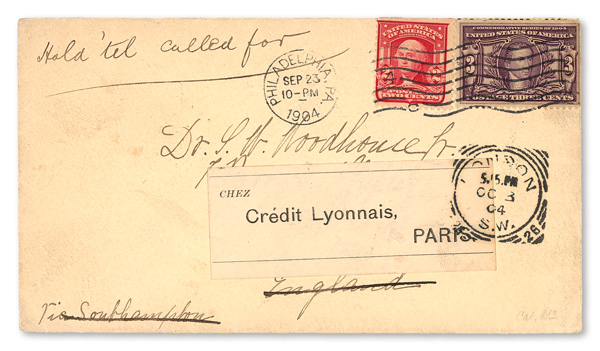 Hold 'tel called for
PHILADELPHIA, PA.
SEP 23
10-PM
1904
C
UNITED STATES
OF AMERICA
TWO CENTS
COMMEMORATIVE SERIES OF 1904
UNITED STATES OF AMERICA
3 3
POSTAGE THREE CENTS
Dr. S. W. Woodhouse Jr.
CHEZ
Crédit Lyonnais,
PARIS
LONDON
5.15.PM
OC 3
04
S.W.
26 26
England
Via Southampton